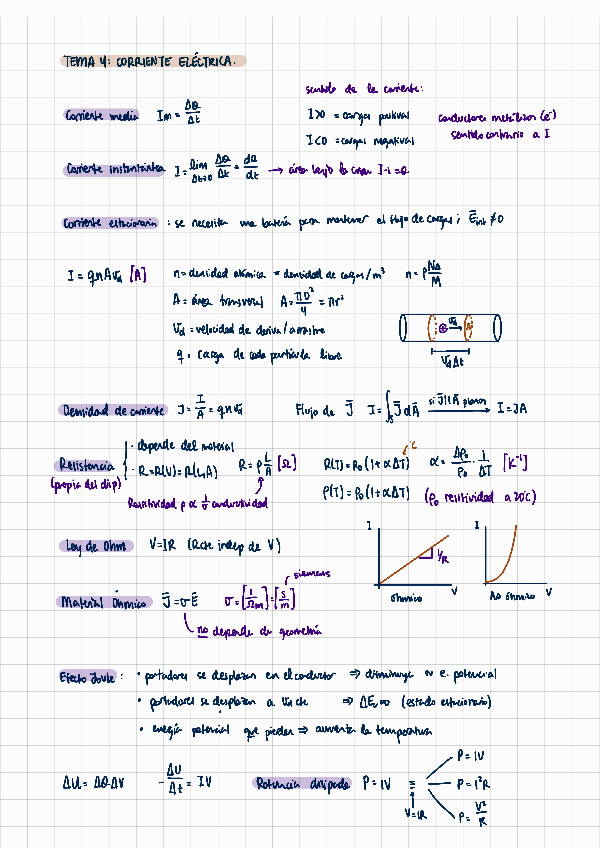 TEMA 4: CORRIENTE ELÉCTRICA.
sentido de la corriente:
Corriente media Im = ΔQ/Δt
I>0 = cargas positivas
I<0 = cargas negativas
conductores metálicos (e⁻)
sentido contrario a I
Corriente instantánea I = lim Δt→0 ΔQ/Δt = dQ/dt → área bajo la curva I-t = Q
Corriente estacionaria : se necesita una batería para mantener el flujo de cargas ; E⃗int ≠ 0
I = q n A vd [A]
n = densidad atómica = densidad de cargas/m³ n = ρ NA/M
A = área transversal A = πD²/4 = πr²
Vd = velocidad de deriva / arrastre
q = carga de cada partícula libre
vd
A
vdΔt
Densidad de corriente J = I/A = q n vd
Flujo de J⃗ I = ∫s J⃗ dA⃗ si J⃗ ∥ A⃗ planos → I = JA
Resistencia
(propia del disp)
· depende del material
· R = R(V) = R(L,A)
R = ρ L/A [Ω]
Resistividad ρ ∝ 1/σ conductividad
°C
R(T) = R₀ (1 + αΔT) α = Δρ₀/ρ₀ · 1/ΔT [K⁻¹]
ρ(T) = ρ₀ (1 + αΔT) (ρ₀ resistividad a 20°C)
Ley de Ohm V = IR (R cte indep de V)
I
1/R
V
óhmico
I
V
No óhmico
Material Óhmico J⃗ = σ E⃗ σ = [1/Ωm] = [S/m]
siemens
no depende de geometría
Efecto Joule : • portadores se desplazan en el conductor ⇒ disminuye su e. potencial
• portadores se desplazan a Vd cte ⇒ ΔEc = 0 (estado estacionario)
• energía potencial que pierden ⇒ aumenta la temperatura
ΔU = ΔQ·ΔV -ΔU/Δt = IV
Potencia disipada P = IV ≡
V = IR
P = IV
P = I²R
P = V²/R